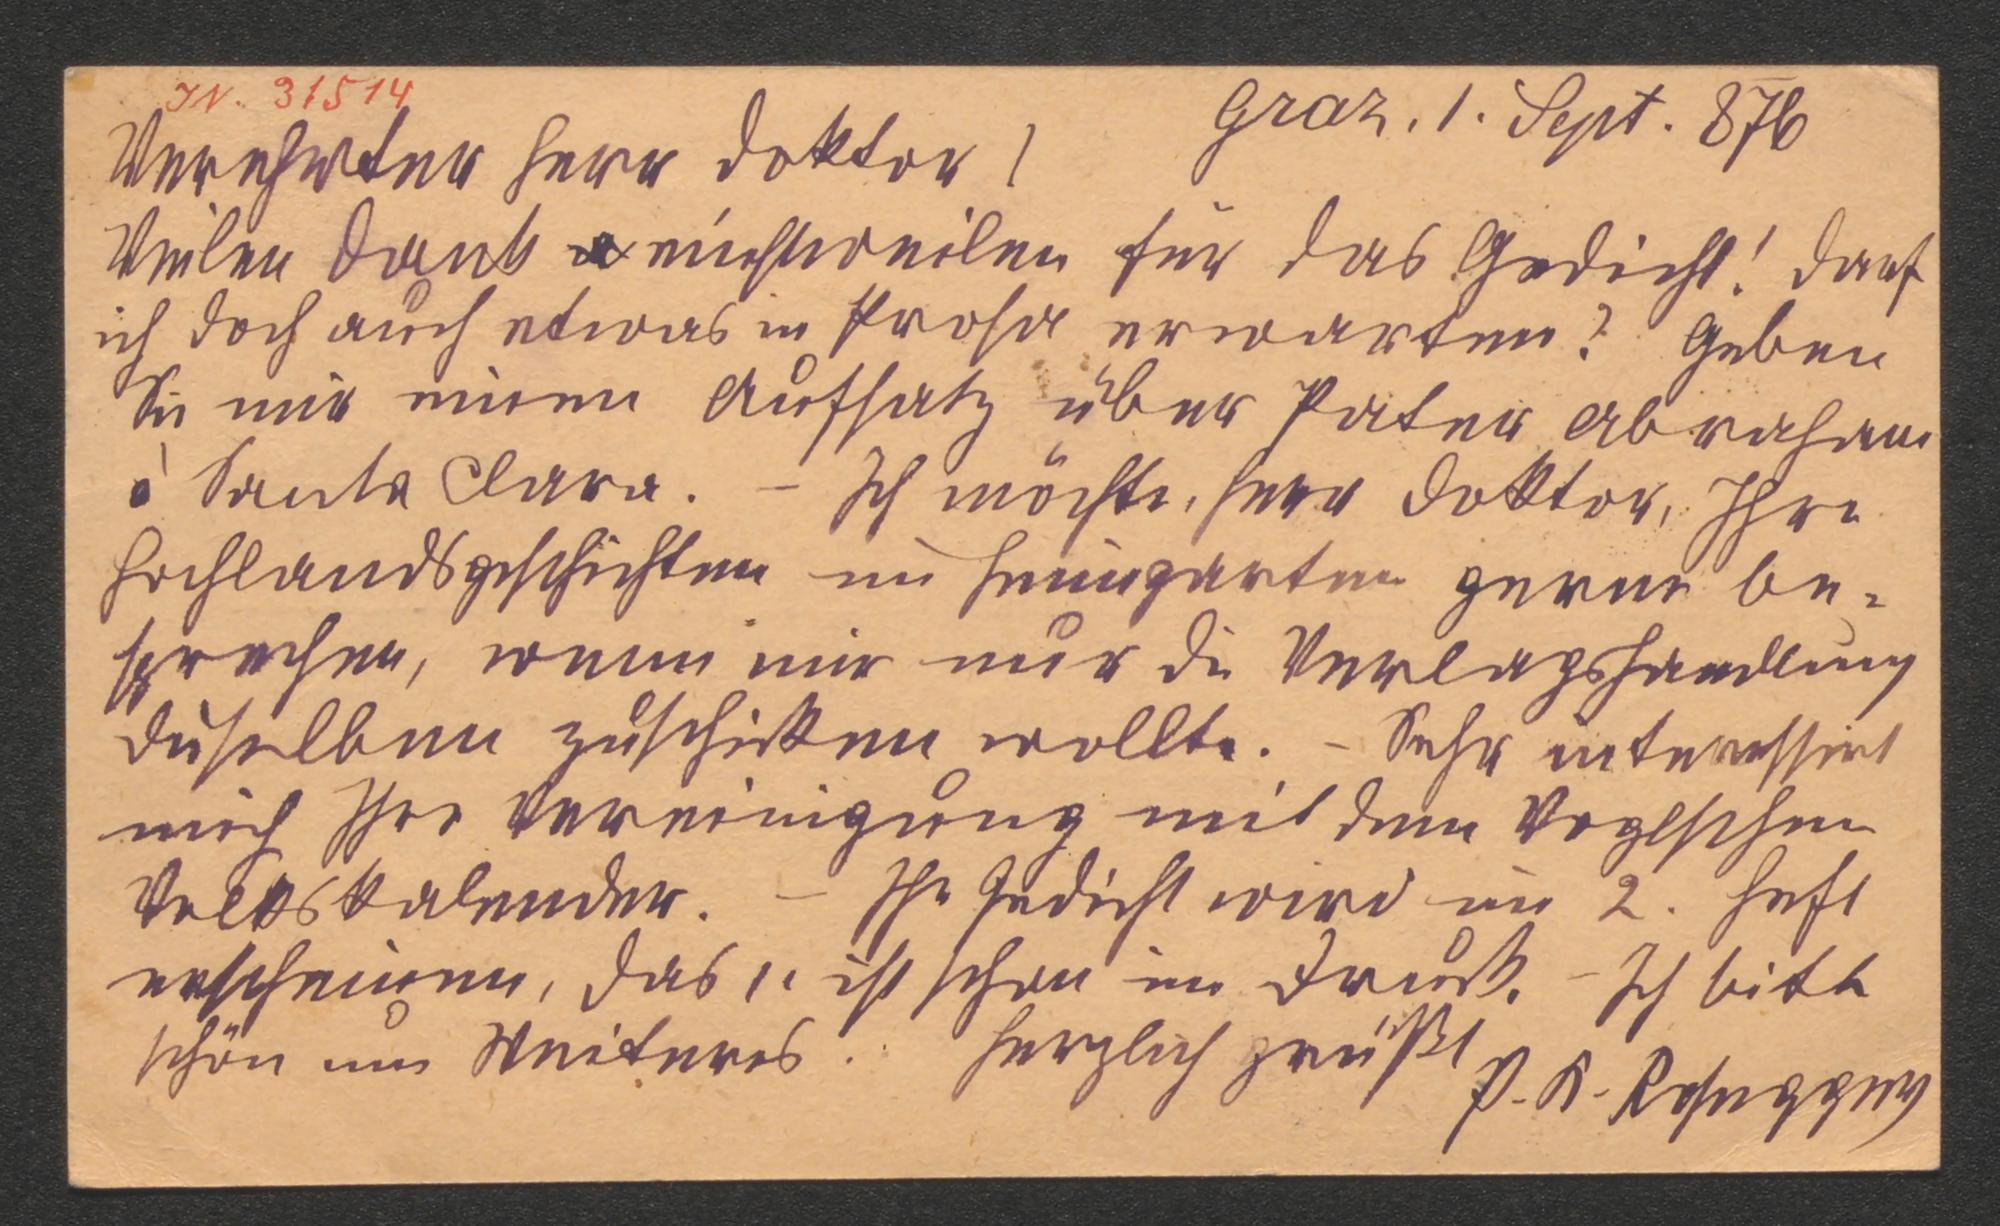 IN. 31514
Graz, 1. Sept. 876
Verehrter Herr Doktor!
Vielen Dank einstweilen für das Gedicht! Darf
ich doch auch etwas in Prosa erwarten? Geben
Sie mir einen Aufsatz über Pater Abraham
à Santa Clara. – Ich möchte, Herr Doktor, Ihre
Hochlandsgeschichten im Heimgarten gerne be-
sprechen, wenn mir nur die Verlagshandlung
dieselben zuschicken wollte. – Sehr interessirt
mich Ihre Vereinigung mit dem Voglschen
Volkskalender. – Ihr Gedicht wird im 2. Heft
erscheinen, das 1. ist schon im Druck. – Ich bitte
schön um Weiteres. Herzlich grüßt
P. K. Rosegger